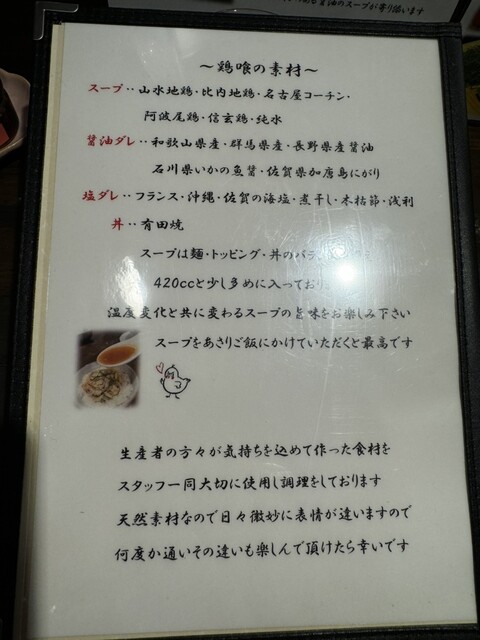 醤油のスープが寄り添います
～鶏喰の素材～
スープ‥山水地鶏・比内地鶏・名古屋コーチン・
阿波尾鶏・信玄鶏・純水
醤油ダレ‥和歌山県産・群馬県産・長野県産醤油
石川県いかの魚醤・佐賀県加唐島にがり
塩ダレ‥フランス・沖縄・佐賀の海塩・煮干し・本枯節・浅利
丼‥有田焼
スープは麺・トッピング・丼のバラ
420ccと少し多めに入っており
温度変化と共に変わるスープの旨味をお楽しみ下さい
スープをあさりご飯にかけていただくと最高です
生産者の方々が気持ちを込めて作った食材を
スタッフ一同大切に使用し調理をしております
天然素材なので日々微妙に表情が違いますので
何度か通いその違いも楽しんで頂けたら幸いです